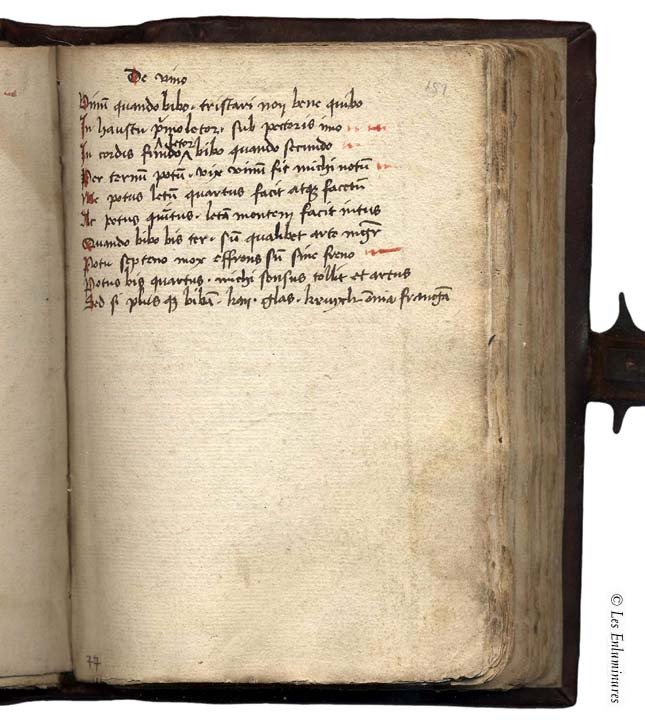 De vino
151
Vinū quando bibo · tristari non bene quibo
In haustu pͥmo letor · sub pectoris imo
In cordis fundo letor bibo quando secundo
Per ternū potū · vix vinum fit michi notū
Me potus letū quartus facit atqꝫ facetū
Ac potus quītus · letā mentem facit intus
Quando bibo bis ter · sū qualibet arte mgr̄
Potu septeno mox effrons sū sine freno
Potus bis quartus · michi sensus tollit et artus
Sed si plus qꝫ bibā · kan · glas · oīa frangā
77
© Les Enluminures